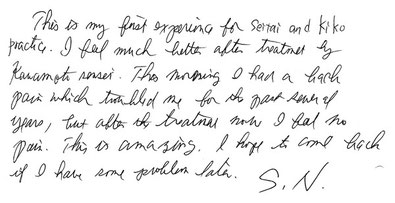 This is my first experience for Seitai and Kiko
practice. I feel much better after treatment by
Kanamoto sensei. This morning I had a back
pain which troubled me for the past several
years, but after the treatment now I feel no
pain. This is amazing. I hope to come back
if I have some problem later. S.N.